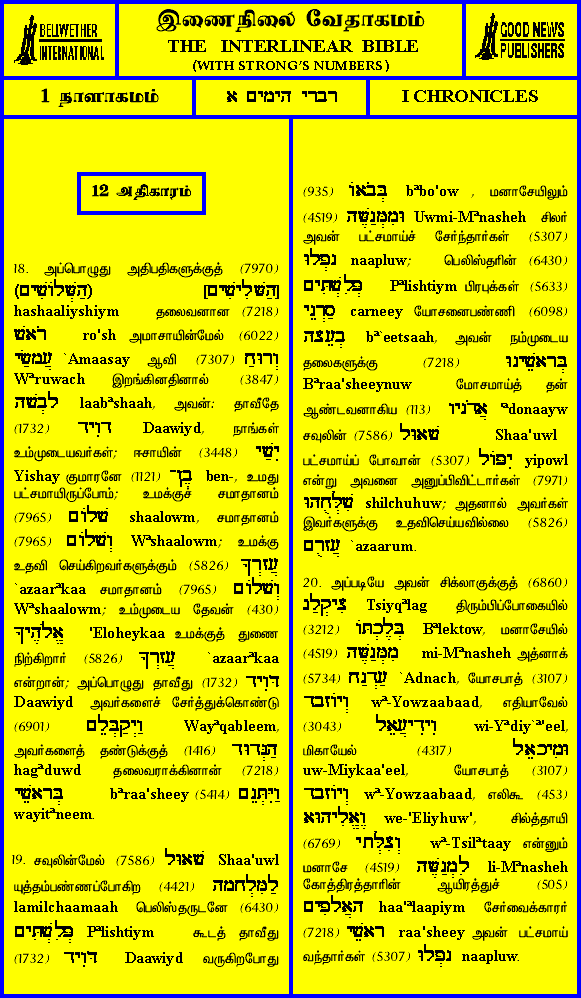 BELLWETHER
INTERNATIONAL
இணைநிலை வேதாகமம்
THE INTERLINEAR BIBLE
(WITH STRONG'S NUMBERS)
GOOD NEWS
PUBLISHERS
1 நாளாகமம்
דברי הימים א
I CHRONICLES
12 அதிகாரம்
18. அப்பொழுது அதிபதிகளுக்குத் (7970)
[הַשָּׁלִישִׁים] (הַשְּׁלוֹשִׁים)
hashaaliyshiym தலைவனான (7218)
רֹאשׁ ro'sh அமாசாயின்மேல் (6022)
עֲמָשַׂי `Amaasay ஆவி (7307) וְרוּחַ
Wªruwach இறங்கினதினால் (3847)
לָבְשָׁה laabªshaah, அவன்: தாவீதே
(1732) דָוִיד Daawiyd, நாங்கள்
உம்முடையவர்கள்; ஈசாயின் (3448) יִשַׁי
Yishay குமாரனே (1121) בֶן־ ben-, உமது
பட்சமாயிருப்போம்; உமக்குச் சமாதானம்
(7965) שָׁלוֹם shaalowm, சமாதானம்
(7965) וְשָׁלוֹם Wªshaalowm; உமக்கு
உதவி செய்கிறவர்களுக்கும் (5826) עֹזְרֶךָ
`azaarªkaa சமாதானம் (7965) וְשָׁלוֹם
Wªshaalowm; உம்முடைய தேவன் (430)
אֱלֹהֶיךָ 'Eloheykaa உமக்குத் துணை
நிற்கிறார் (5826) עֲזָרְךָ `azaarªkaa
என்றான்; அப்பொழுது தாவீது (1732) דָוִיד
Daawiyd அவர்களைச் சேர்த்துக்கொண்டு
(6901) וַיְקַבְּלֵם Wayªqableem,
அவர்களைத் தண்டுக்குத் (1416) הַגְּדוּד
hagªduwd தலைவராக்கினான் (7218)
בְּרָאשֵׁי bªraa'sheey (5414) וַיִּתְּנֵם
wayitªneem.
19. சவுலின்மேல் (7586) שָׁאוּל Shaa'uwl
யுத்தம்பண்ணப்போகிற (4421) לַמִּלְחָמָה
lamilchaamaah பெலிஸ்தருடனே (6430)
פְּלִשְׁתִּים Pªlishtiym கூடத் தாவீது
(1732) דָוִיד Daawiyd வருகிறபோது
(935) בְּבֹאוֹ bªbo'ow , மனாசேயிலும்
(4519) וּמִמְּנַשֶּׁה Uwmi-Mªnasheh சிலர்
அவன் பட்சமாய்ச் சேர்ந்தார்கள் (5307)
נָפְלוּ naapluw; பெலிஸ்தரின் (6430)
פְּלִשְׁתִּים Pªlishtiym பிரபுக்கள் (5633)
סַרְנֵי carneey யோசனைபண்ணி (6098)
בְעֵצָה bª`eetsaah, அவன் நம்முடைய
தலைகளுக்கு (7218) בְּרָאשֵׁינוּ
Bªraa'sheeynuw மோசமாய்த் தன்
ஆண்டவனாகிய (113) אֲדֹנָיו ªdonaayw
சவுலின் (7586) שָׁאוּל Shaa'uwl
பட்சமாய்ப் போவான் (5307) יִפּוֹל yipowl
என்று அவனை அனுப்பிவிட்டார்கள் (7971)
שִׁלְּחֻהוּ shilchuhuw; அதனால் அவர்கள்
இவர்களுக்கு உதவிசெய்யவில்லை (5826)
עֲזָרֻם `azaarum.
20. அப்படியே அவன் சிக்லாகுக்குத் (6860)
צִיקְלַג Tsiyqªlag திரும்பிப்போகையில்
(3212) בְּלֶכְתּוֹ Bªlektow, மனாசேயில்
(4519) מִמְּנַשֶּׁה mi-Mªnasheh அத்னாக்
(5734) עַדְנַח `Adnach, யோசபாத் (3107)
וְיוֹזָבָד wª-Yowzaabaad, எதியாவேல்
(3043) וִידִיעֲאֵל wi-Yªdiy`ª'eel,
மிகாயேல் (4317) וּמִיכָאֵל
uw-Miykaa'eel, யோசபாத் (3107)
וְיוֹזָבָד wª-Yowzaabaad, எலிகூ (453)
וֶאֱלִיהוּא we-'Eliyhuw', சில்த்தாயி
(6769) וְצִלְּתָי wª-Tsilªtaay என்னும்
மனாசே (4519) לִמְנַשֶּׁה li-Mªnasheh
கோத்திரத்தாரின் ஆயிரத்துச் (505)
הָאֲלָפִים haa'ªlaapiym சேர்வைக்காரர்
(7218) רָאשֵׁי raa'sheey அவன் பட்சமாய்
வந்தார்கள் (5307) נָפְלוּ naapluw.